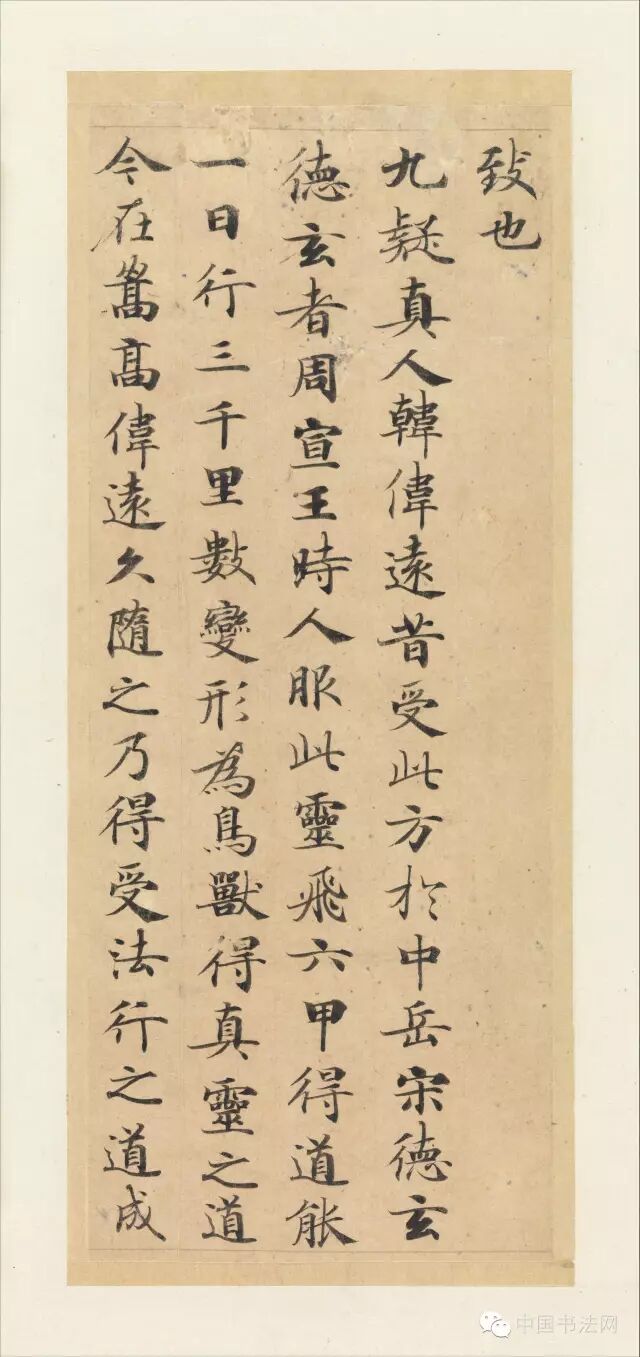 致也
九疑真人韓偉遠昔受此方於中岳宋德玄
德玄者周宣王時人服此靈飛六甲得道能
一日行三千里數變形為鳥獸得真靈之道
今在嵩高偉遠久隨之乃得受法行之道成
中国书法网